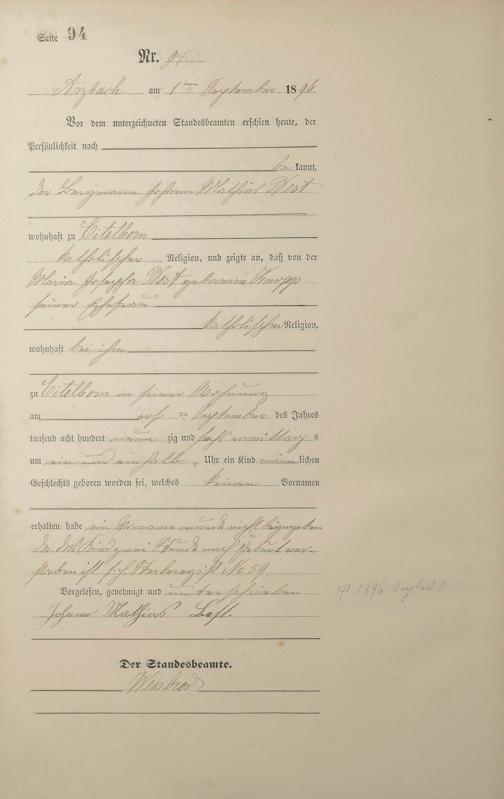 Seite 94
Nr. 94
Arzbach am 1ten September 1896
Vor dem unterzeichneten Standesbeamten erschien heute, der
Persönlichkeit nach
be kannt,
der Bergmann Johann Mathias Best
wohnhaft zu Eitelborn
katholischer Religion, und zeigte an, daß von der
Maria Josepha Best geborenen Knopp
seiner Ehefrau
katholischer Religion,
wohnhaft bei ihm
zu Eitelborn in seiner Wohnung
am ersten September des Jahres
tausend acht hundert neun zig und sechs vormittags
um ein und einhalb Uhr ein Kind männlichen
Geschlechts geboren worden sei, welches keinen Vornamen
erhalten habe ein Vorname wurde nicht beigegeben
da das Kind zwei Stunde nach Geburt ver-
storben ist No 59
Vorgelesen, genehmigt und unterschrieben
Johann Mathias Best.
1896 Septb 1
Der Standesbeamte.
Weisbrod